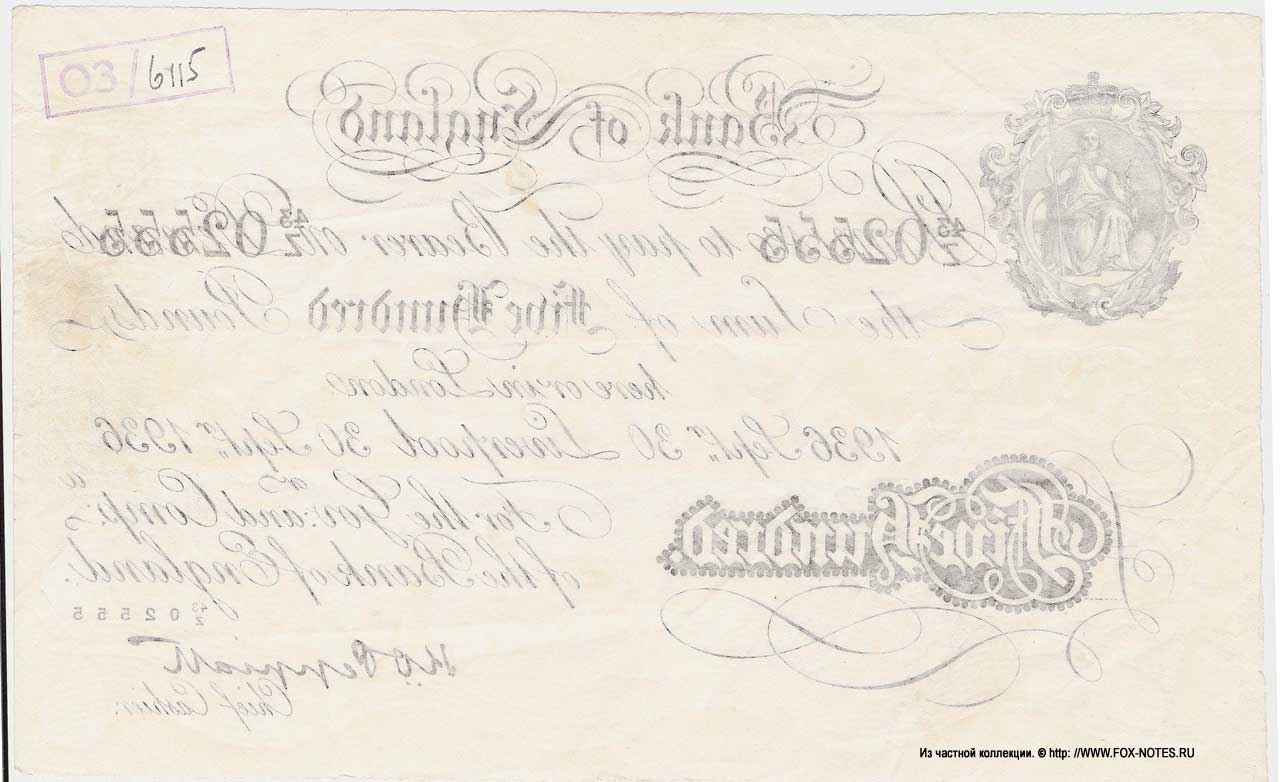 03/6115
Bank of England
43/Z 02555 to pay the Bearer on 43/Z 02555
the Sum of Five Hundred Pounds
here or in London
1936 Septr. 30 Liverpool 30 Septr. 1936
For the Govr: and Compa:
of the Bank of England.
Five Hundred
43/Z 02555
K.O. Peppiatt
Chief Cashier.
Из частной коллекции. © http: //WWW.FOX-NOTES.RU